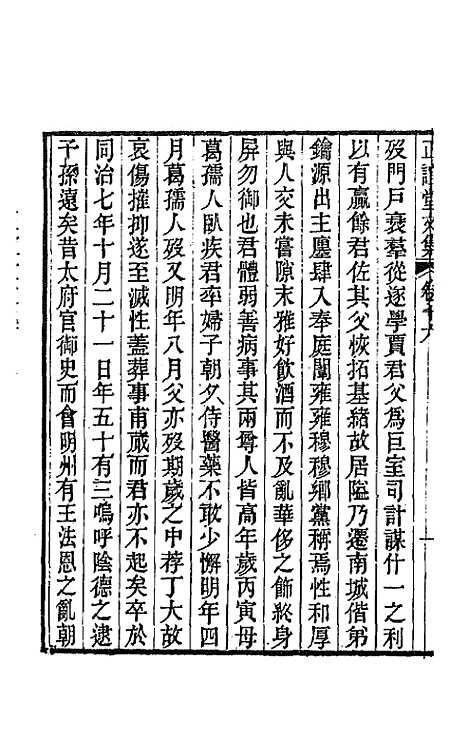 正誼堂文集 卷十六
歿門戶衰羣從逐學賈君父爲巨室司計謀什一之利
以有贏餘君佐其父恢拓基緒故居隘乃遷南城偕弟
鑰源出主廛肆入奉庭闈雍雍穆穆鄉黨稱焉性和厚
與人交未嘗隙末雅好飲酒而不及亂華侈之飾終身
屏勿御也君體弱善病事其兩尊人皆高年歲丙寅母
葛孺人臥疾君率婦子朝夕侍醫藥不敢少懈明年四
月葛孺人歿又明年八月父亦歿期歲之中荐丁大故
哀傷摧抑遂至滅性蓋葬事甫蕆而君亦不起矣卒於
同治七年十月二十一日年五十有三嗚呼陰德之逮
子孫遠矣昔太府官御史而會明州有王法恩之亂朝